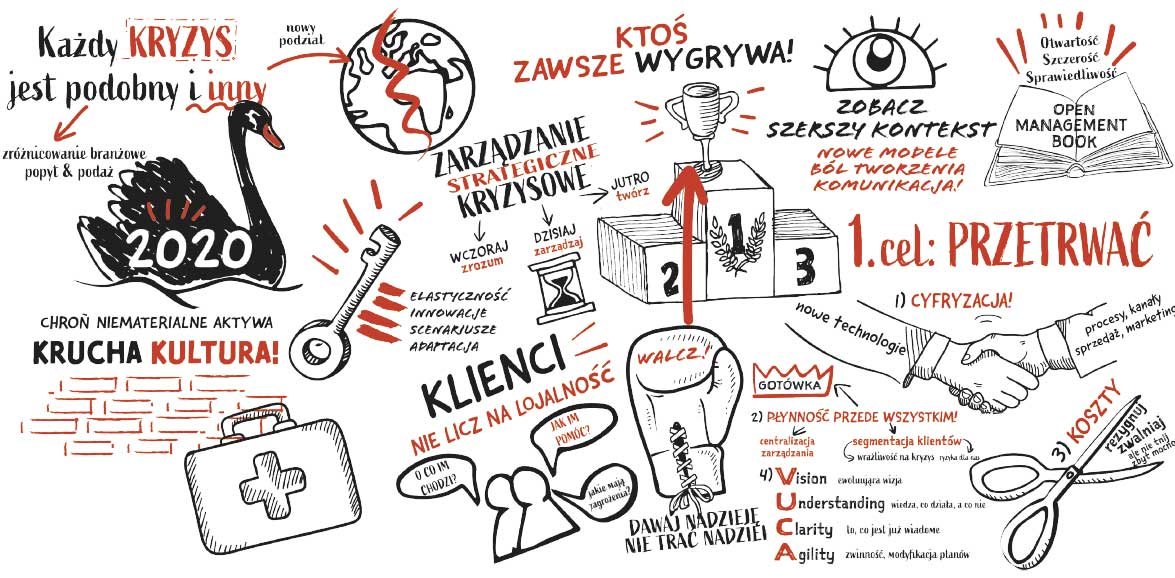 Każdy KRYZYS
jest podobny i inny
zróżnicowanie branżowe
popyt & podaż
2020
nowy
podział
CHROŃ NIEMATERIALNE AKTYWA
KRUCHA KULTURA!
ELASTYCZNOŚĆ
INNOWACJE
SCENARIUSZE
ADAPTACJA
ZARZĄDZANIE
STRATEGICZNE
KRYZYSOWE
WCZORAJ
zrozum
DZISIAJ
zarządzaj
JUTRO
twórz
KTOŚ
ZAWSZE WYGRYWA!
1
2
3
ZOBACZ
SZERSZY KONTEKST
NOWE MODELE
BÓL TWORZENIA
KOMUNIKACJA!
Otwartość
Szczerość
Sprawiedliwość
OPEN
MANAGEMENT
BOOK
KLIENCI
NIE LICZ NA LOJALNOŚĆ
O CO IM
CHODZI?
JAK IM
POMÓC?
jakie mają
zagrożenia?
WALCZ!
DAWAJ NADZIEJĘ
NIE TRAĆ NADZIEI
1.cel: PRZETRWAĆ
1) CYFRYZACJA!
nowe technologie
procesy, kanały
sprzedaż, marketing
GOTÓWKA
2) PŁYNNOŚĆ PRZEDE WSZYSTKIM!
centralizacja
zarządzania
segmentacja klientów
wrażliwość na kryzys ryzyka dla nas
3) KOSZTY
rezygnuj
zwalniaj
ale nie tnij
zbyt mocno
4) Vision ewoluująca wizja
Understanding wiedza, co działa, a co nie
Clarity to, co jest już wiadome
Agility zwinność, modyfikacja planów